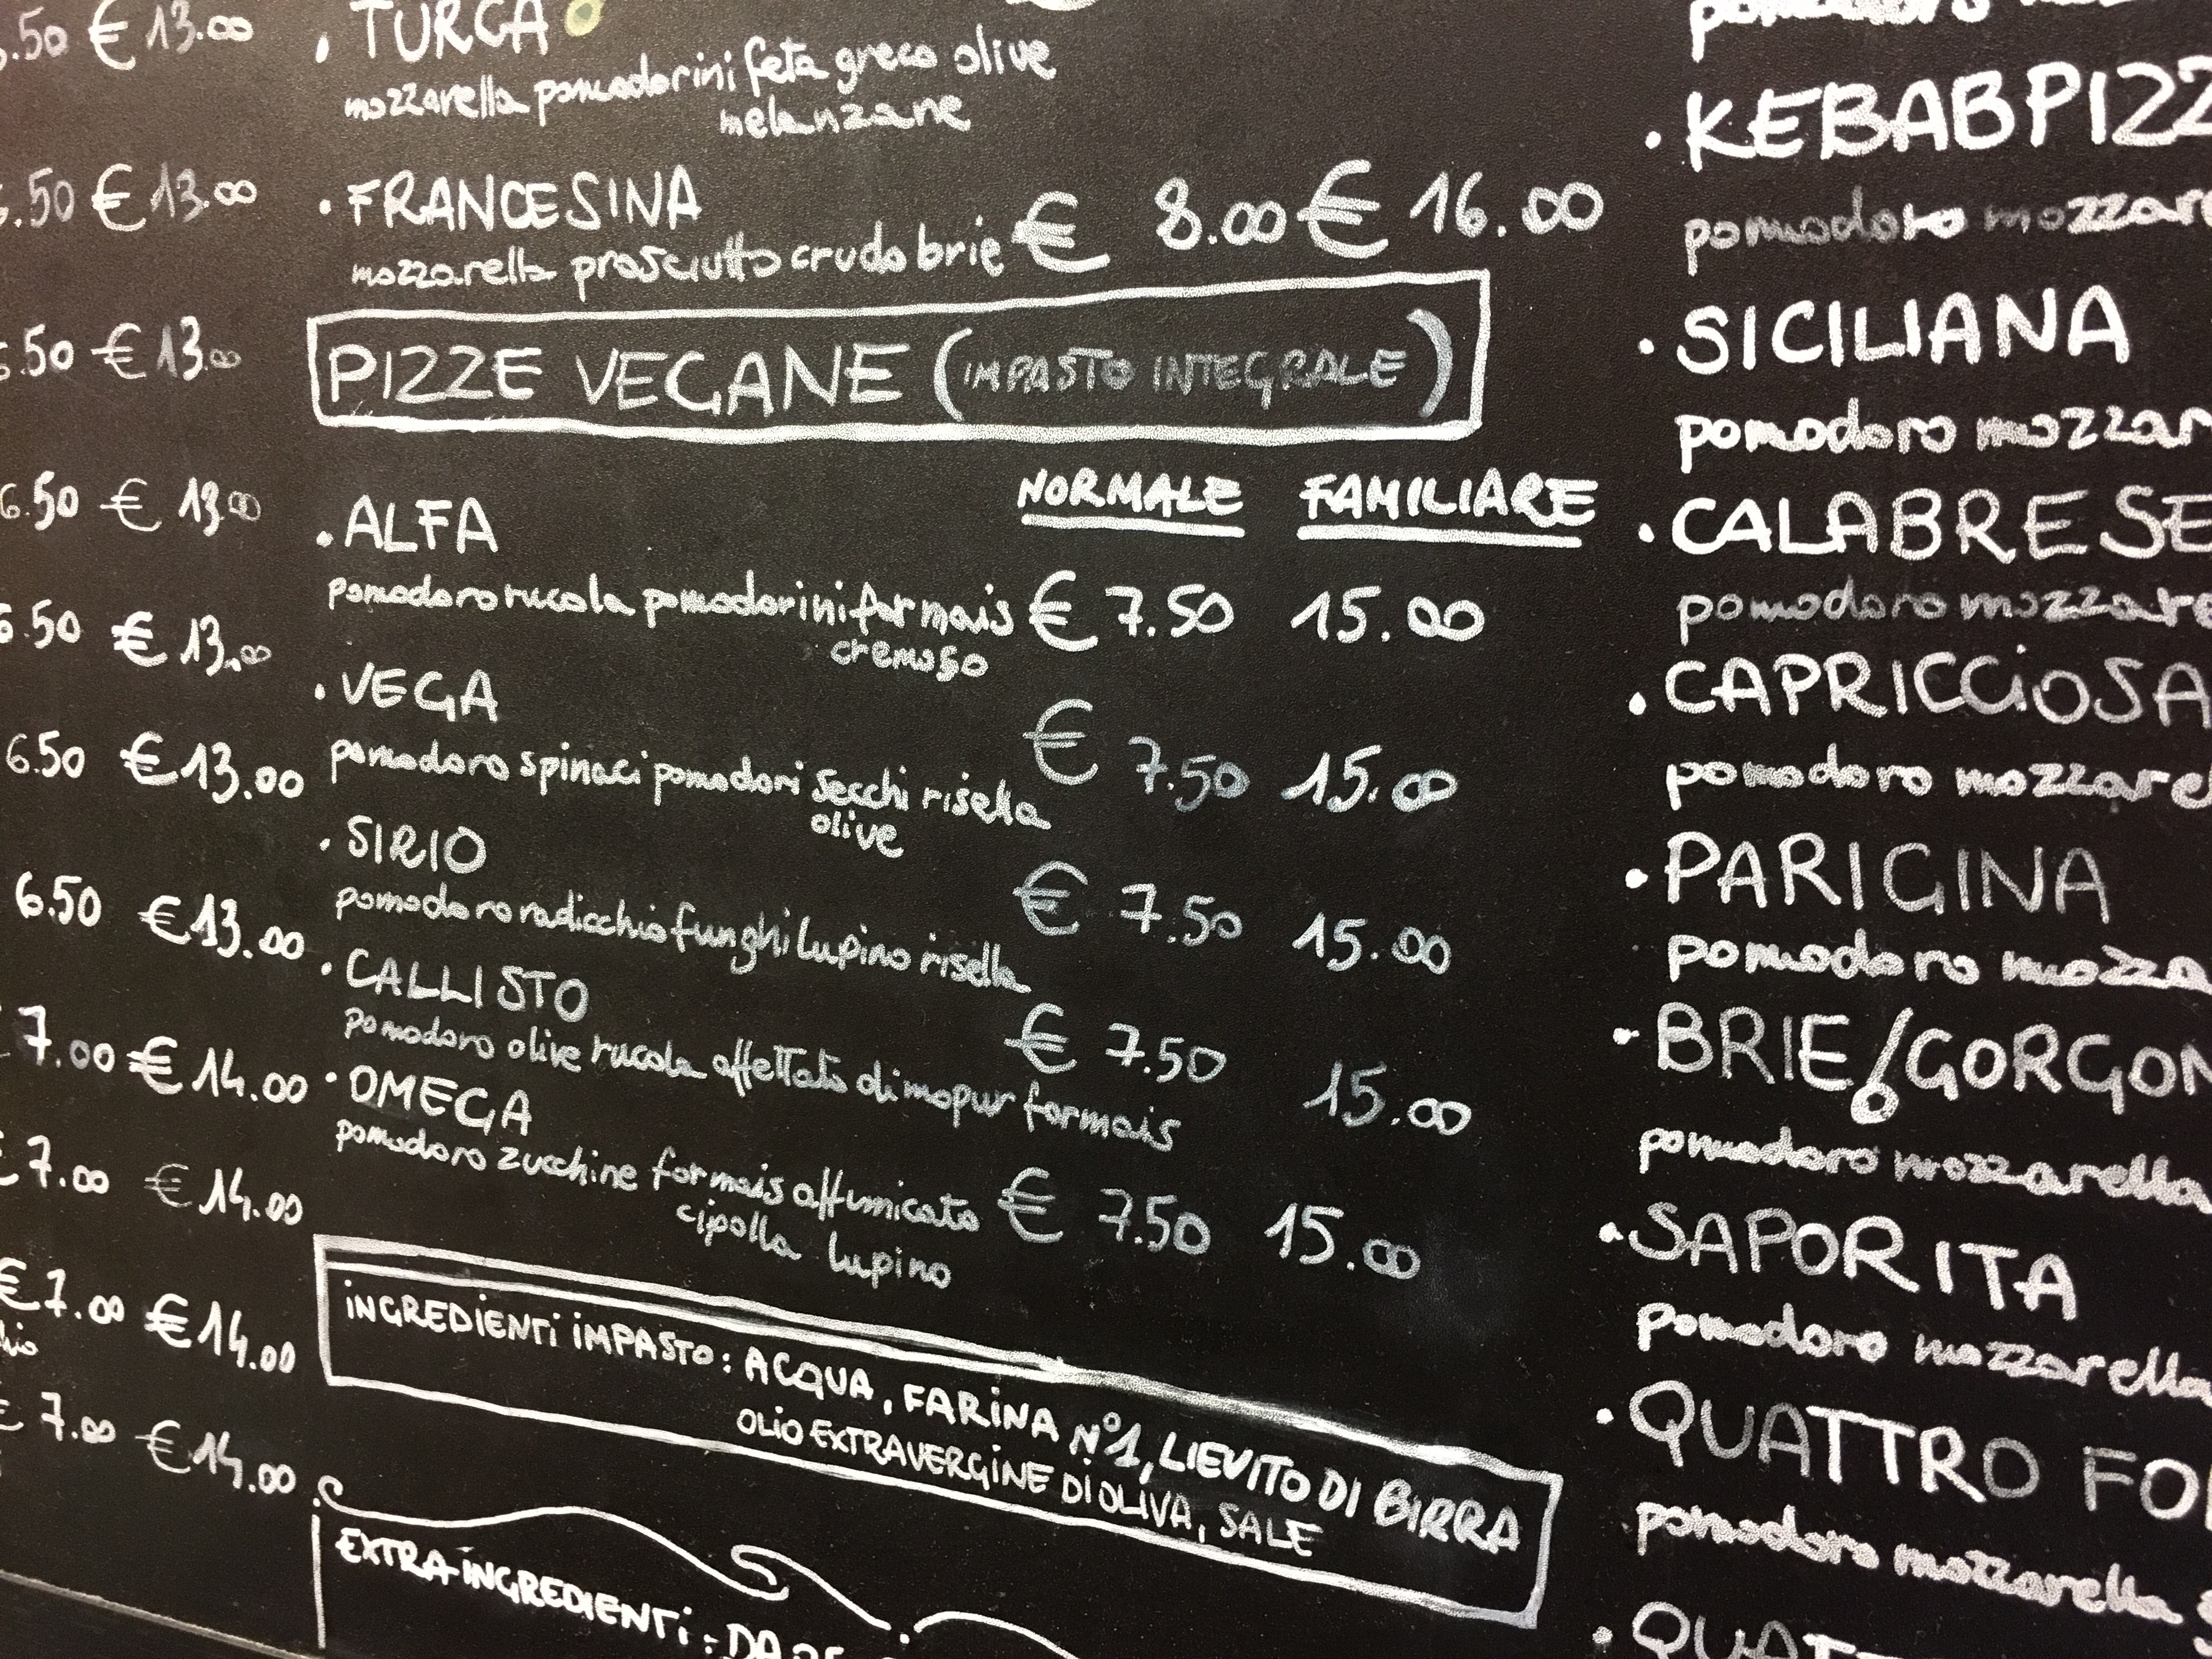 .50 € 13.00
.50 € 13.00
.50 € 13.00
6.50 € 13.00
6.50 € 13.00
6.50 € 13.00
6.50 € 13.00
7.00 € 14.00
€ 7.00 € 14.00
€ 7.00 € 14.00
€ 7.00 € 14.00
• TURCA
mozzarella pomodorini feta greco olive
melanzane
• FRANCESINA
mozzarella prosciutto crudo brie € 8.00 € 16.00
PIZZE VEGANE (IMPASTO INTEGRALE)
NORMALE FAMILIARE
• ALFA
pomodoro rucola pomodorini formais € 7.50 15.00
cremoso
• VEGA
pomodoro spinaci pomodori secchi risella € 7.50 15.00
olive
• SIRIO
pomodoro radicchio funghi lupino risella € 7.50 15.00
• CALLISTO
pomodoro olive rucola affettato di mopur formais € 7.50 15.00
• OMEGA
pomodoro zucchine formais affumicato € 7.50 15.00
cipolla lupino
INGREDIENTI IMPASTO: ACQUA, FARINA N°1, LIEVITO DI BIRRA
OLIO EXTRAVERGINE DI OLIVA, SALE
EXTRA-INGREDIENTI: DA
• KEBABPIZZ
pomodoro mozzar
• SICILIANA
pomodoro mozzar
• CALABRESE
pomodoro mozzare
• CAPRICCIOSA
pomodoro mozzare
• PARIGINA
pomodoro mozza
• BRIE/GORGON
pomodoro mozzarella
• SAPORITA
pomodoro mozzarella
• QUATTRO FO
pomodoro mozzarella
• QUAT